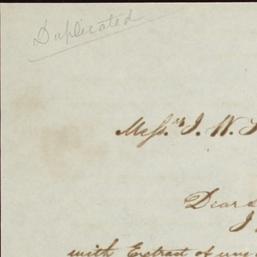 Duplicated
Mess.rs J. W.
Dear
with Extract of